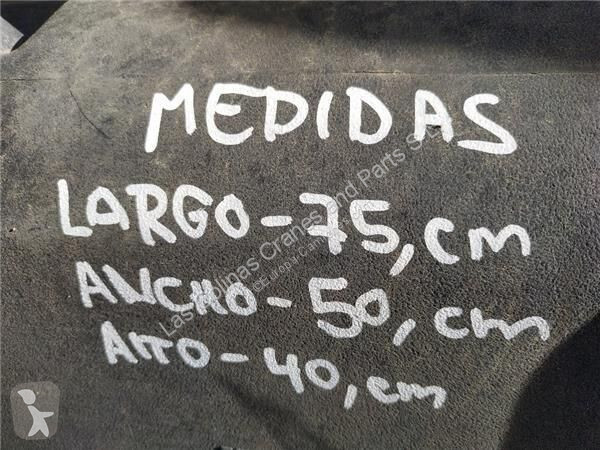 MEDIDAS
LARGO-75,cm
ANCHO-50,cm
AITO-40,cm
Las Molinas Cranes and Parts S.L.